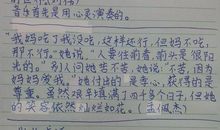 音乐首先是用心灵演奏的。
"我妈吃了我没吃,这样还行,但妈不吃,
那不行。"她说,"人要往前看,前头是很阳
光的。"别人问她苦不苦,她说:"不苦,因为
妈妈爱我。"她付出的是孝心,获得的是
尊重。虽然艰辛填满四千多个日子,但她
的笑容依然灿烂如花。(孟佩杰)